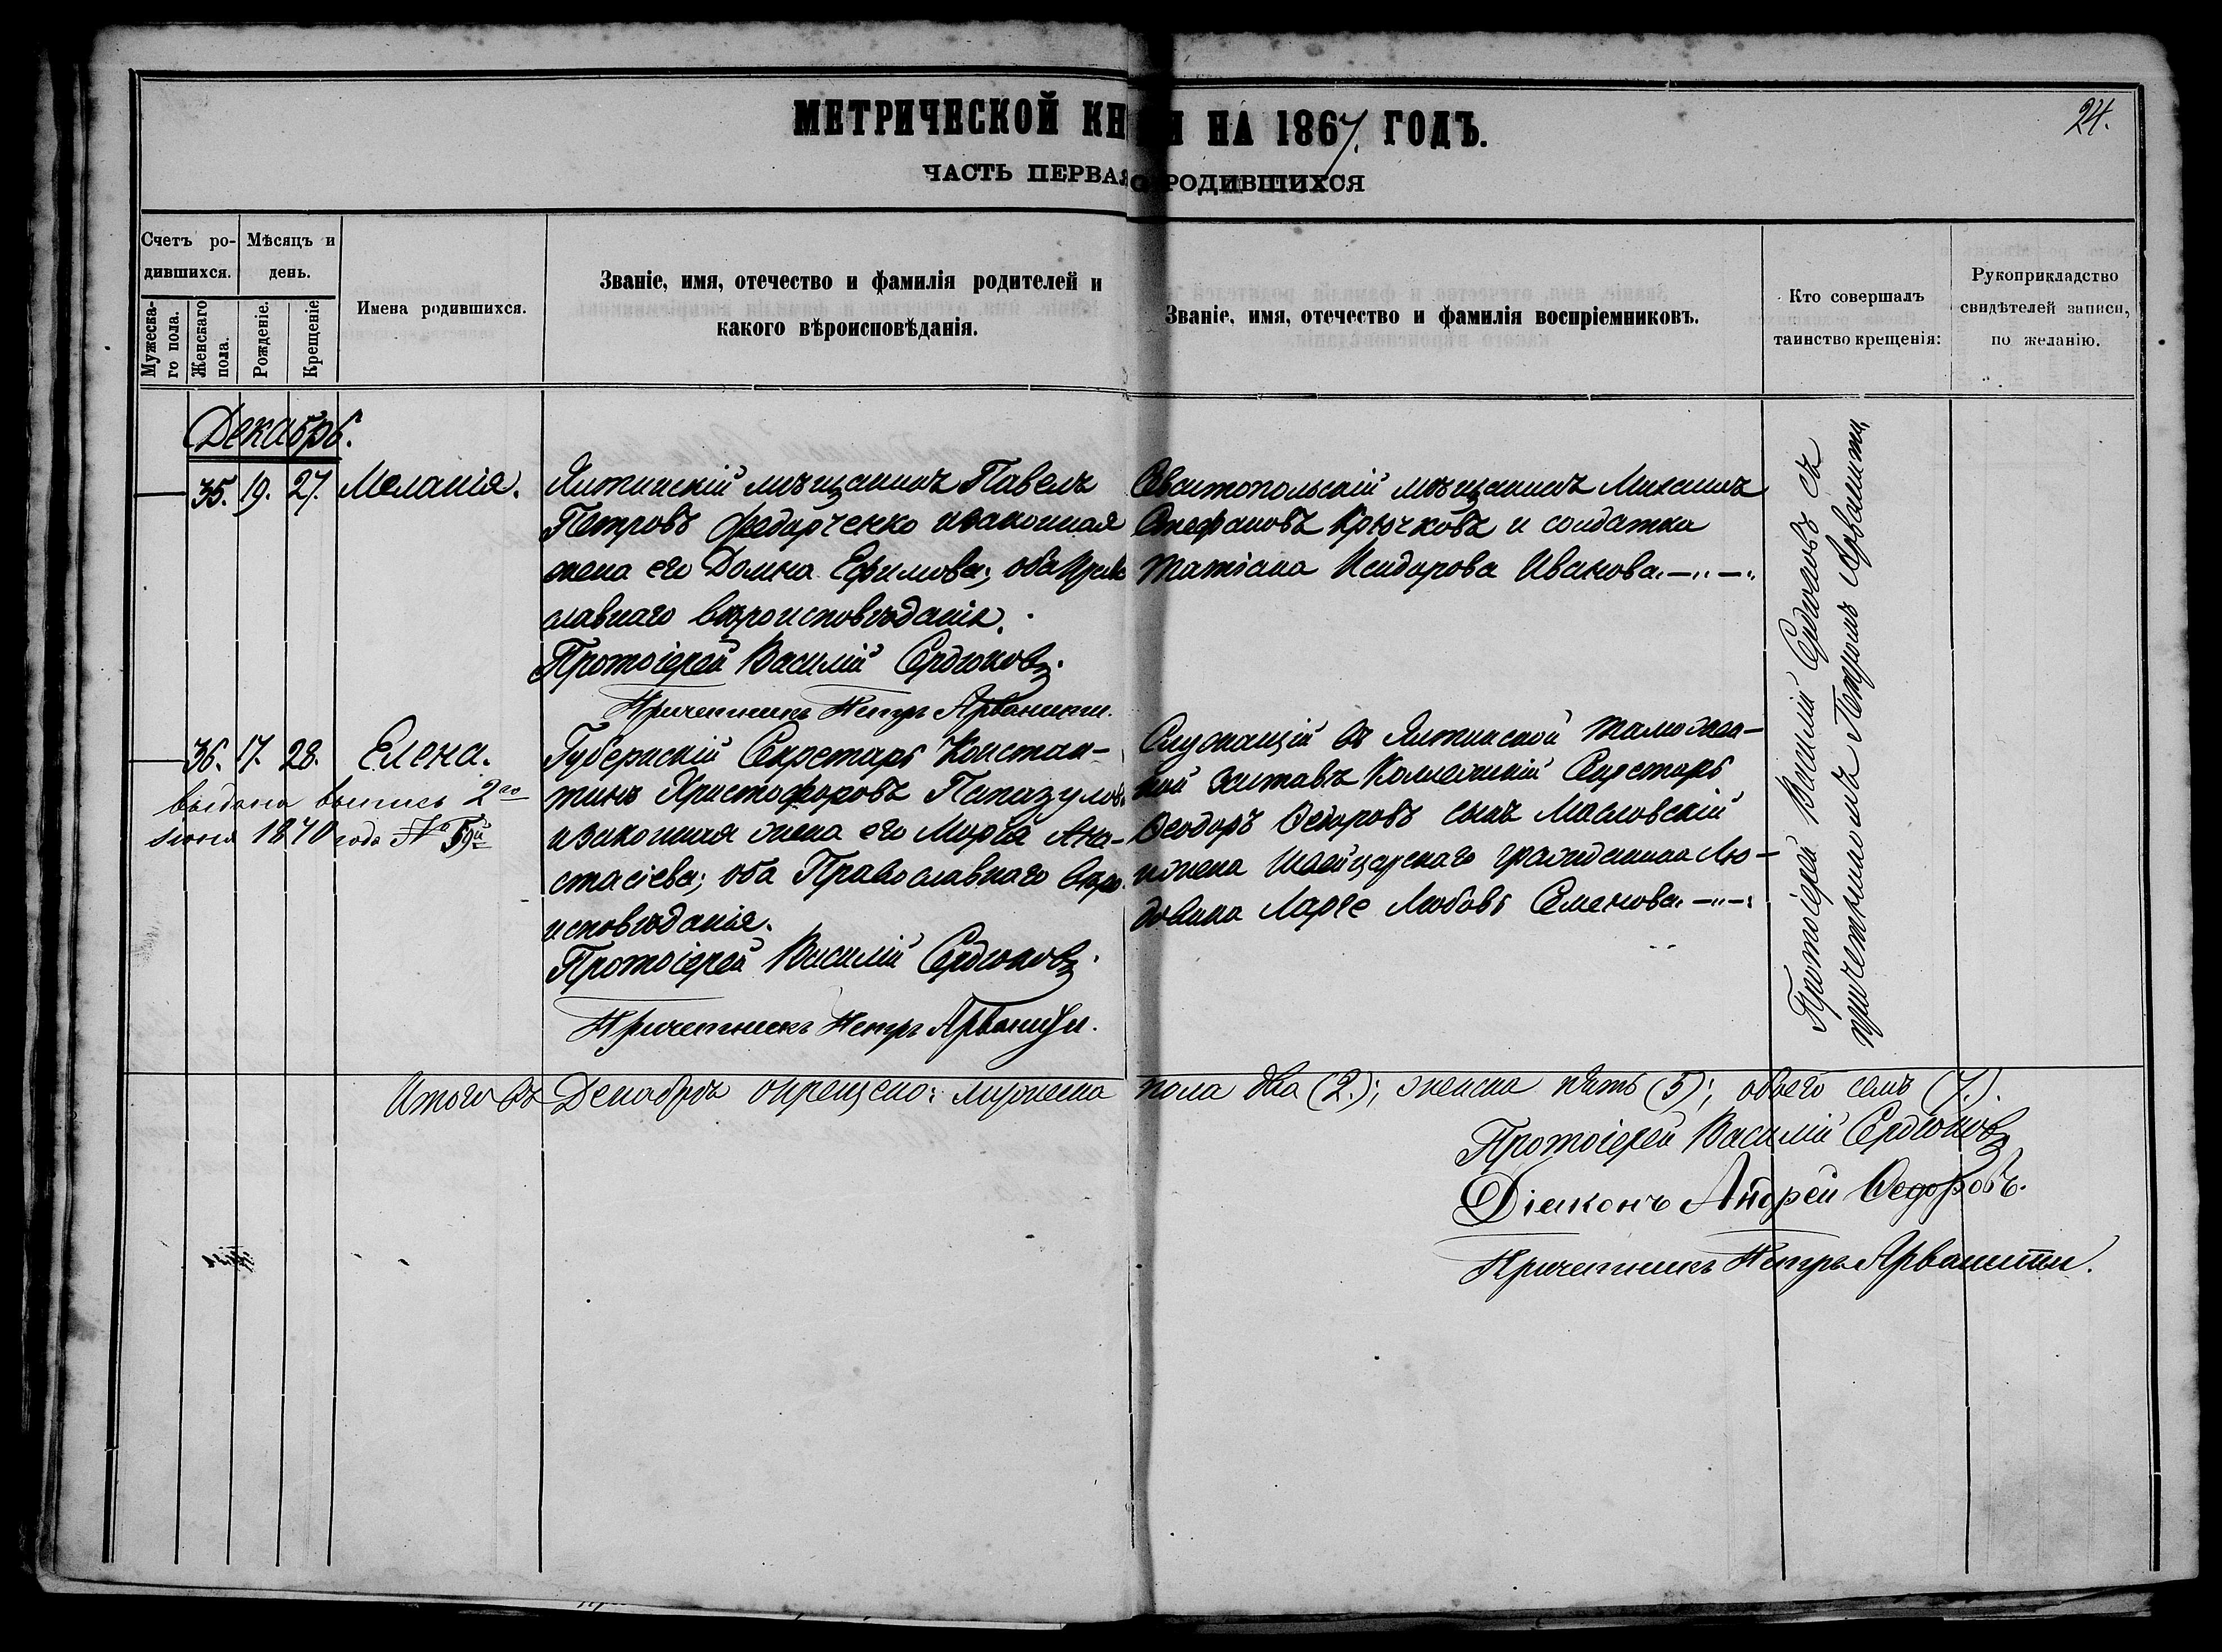 МЕТРИЧЕСКОЙ КН И НА 1867. ГОДЪ.
24.
ЧАСТЬ ПЕРВАЯ О РОДИВШИХСЯ
Счетъ ро-
дившихся.
Мужеска-
го пола.
Женскаго
пола.
Мѣсяцъ и
день.
Рожденіе.
Крещеніе
Имена родившихся.
Званіе, имя, отечество и фамилія родителей и
какого вѣроисповѣданія.
Званіе, имя, отечество и фамилія воспріемниковъ.
Кто совершалъ
таинство крещенія:
Рукоприкладство
свидѣтелей записи,
по желанію.
Декабрь.
35. 19. 27. Меланія.
Ялтинскій мѣщанинъ Павелъ
Петровъ Федорченко и законная
жена его Домна Ефимова; оба Право
славнаго вѣроисповѣданія.
Протоіерей Василій Сердюковъ.
Причетникъ Петръ Арванити.
Севастопольскій мѣщанинъ Михаилъ
Стефановъ Крючковъ и солдатка
Татіана Исидорова Иванова.
36. 17. 28. Елена.
выдана выпись 2го
іюня 1870 года № 59й
Губернскій Секретарь Констан-
тинъ Христофоровъ Папазуловъ
и законная жена его Марѳа Ана-
стасіева; оба Православнаго вѣро
исповѣданія.
Протоіерей Василій Сердюковъ.
Причетникъ Петръ Арванити.
Служащій въ Ялтинской таможен-
ной заставѣ Коллежскій Секретарь
Ѳеодоръ Ѳедоровъ сынъ Масловскій
и жена Швейцарскаго гражданина Лю-
двига Ларге Любовь Семенова.
Протоіерей Василій Сердюковъ съ
причетникомъ Петромъ Арванити.
Итого въ Декабрѣ окрещено: мужеска пола два (2.); женска пять (5); обоего семь (7.).
Протоіерей Василій Сердюковъ
Діяконъ Андрей Ѳедоровъ.
Причетникъ Петръ Арванити.